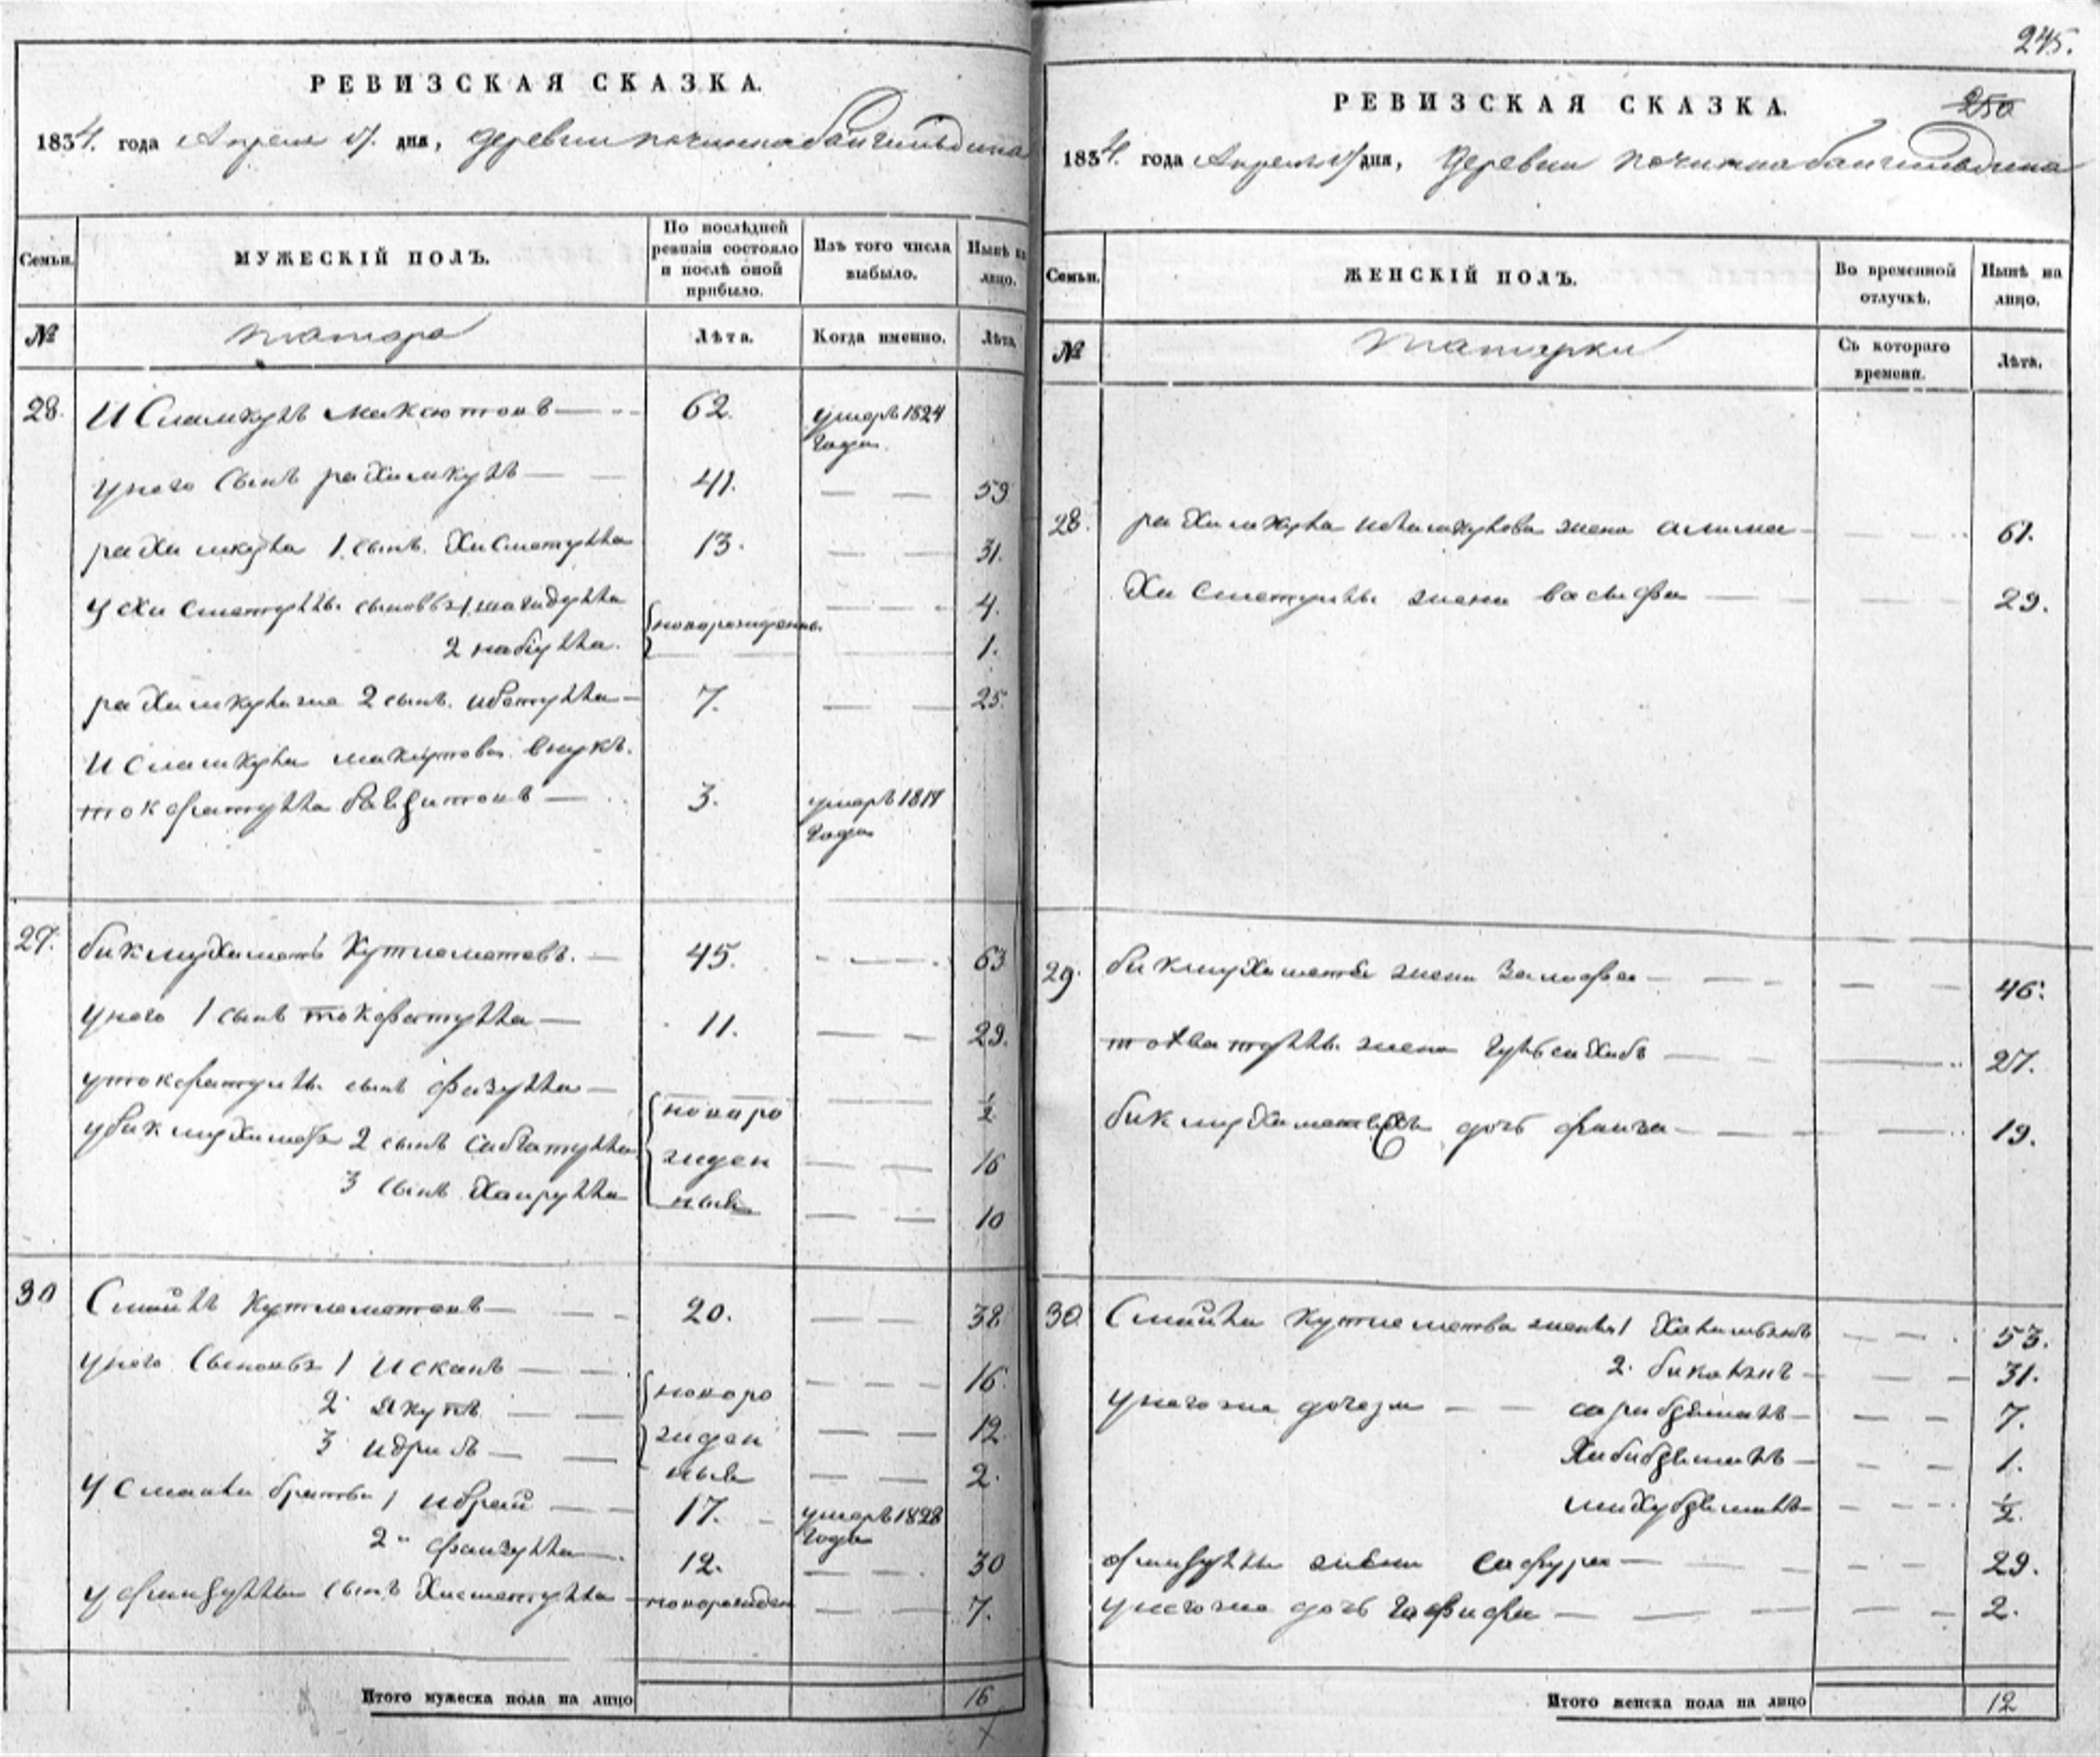 РЕВИЗСКАЯ СКАЗКА.
1834. года Апреля дня, деревни починка баигильдина
СЕМЬИ.
МУЖЕСКІЙ ПОЛЪ.
По послѣдней ревизіи состояло и послѣ оной прибыло.
Изъ того числа выбыло.
Нынѣ на лицо.
№
татара
Лѣта.
Когда именно.
Лѣта.
28. Исламкулъ максютовъ 62. умеръ 1824 года.
у него сынъ рахимкулъ 41. 59
рахимкула 1. сынъ. Хисметулла 13. 31.
у Хисметуллы сыновья 1. загидулла новорожденны. 4.
2 набіулла. 1.
рахимкула же 2 сынъ. ибетулла 7. 25.
Исламкула максютова внукъ.
токфатулла баязитовъ 3. умеръ 1817 года
29. бикмухаметъ Кутлеметовъ. 45. 63
у него 1 сынъ токфатулла 11. 29.
у токфатуллы сынъ фазулла новоро ½
у бикмухамета 2 сынъ сибгатулла жден 16
3 сынъ Хаирулла ныя 10
30 Смаилъ Кутлеметовъ 20. 38
у него сыновья 1 Исканъ 16.
2. якупъ новоро 12.
3 идрисъ жден ныя 2.
у Смаила братья 1 ибрай 17. умеръ 1828 года
2 фаизулла 12. 30
у фаизуллы сынъ Хисметулла новорожден 7.
Итого мужеска пола на лицо 16
245.
250
РЕВИЗСКАЯ СКАЗКА.
1834. года Апреля дня, деревни починка баигильдина
Семьи.
ЖЕНСКІЙ ПОЛЪ.
Во временной отлучкѣ.
Нынѣ на лицо.
№
татарки
Съ котораго времени.
Лѣта.
28. рахимкула жена алима 61.
Хисметуллы жена васифа 29.
29. бикмухамета жена залифа 46.
токватуллы жена 27.
бикмухамета дочь фаиза 19.
30. Смаила Кутлеметова жены 1 53.
2. 31.
у него же дочери 7.
1.
½
фаизуллы жена сафура 29.
у него же дочь гафифа 2.
Итого женска пола на лицо 12